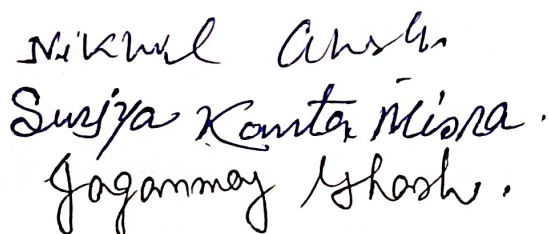 Nikhil Ghosh.
Surjya Kanta Misra.
Jaganmay Ghosh.